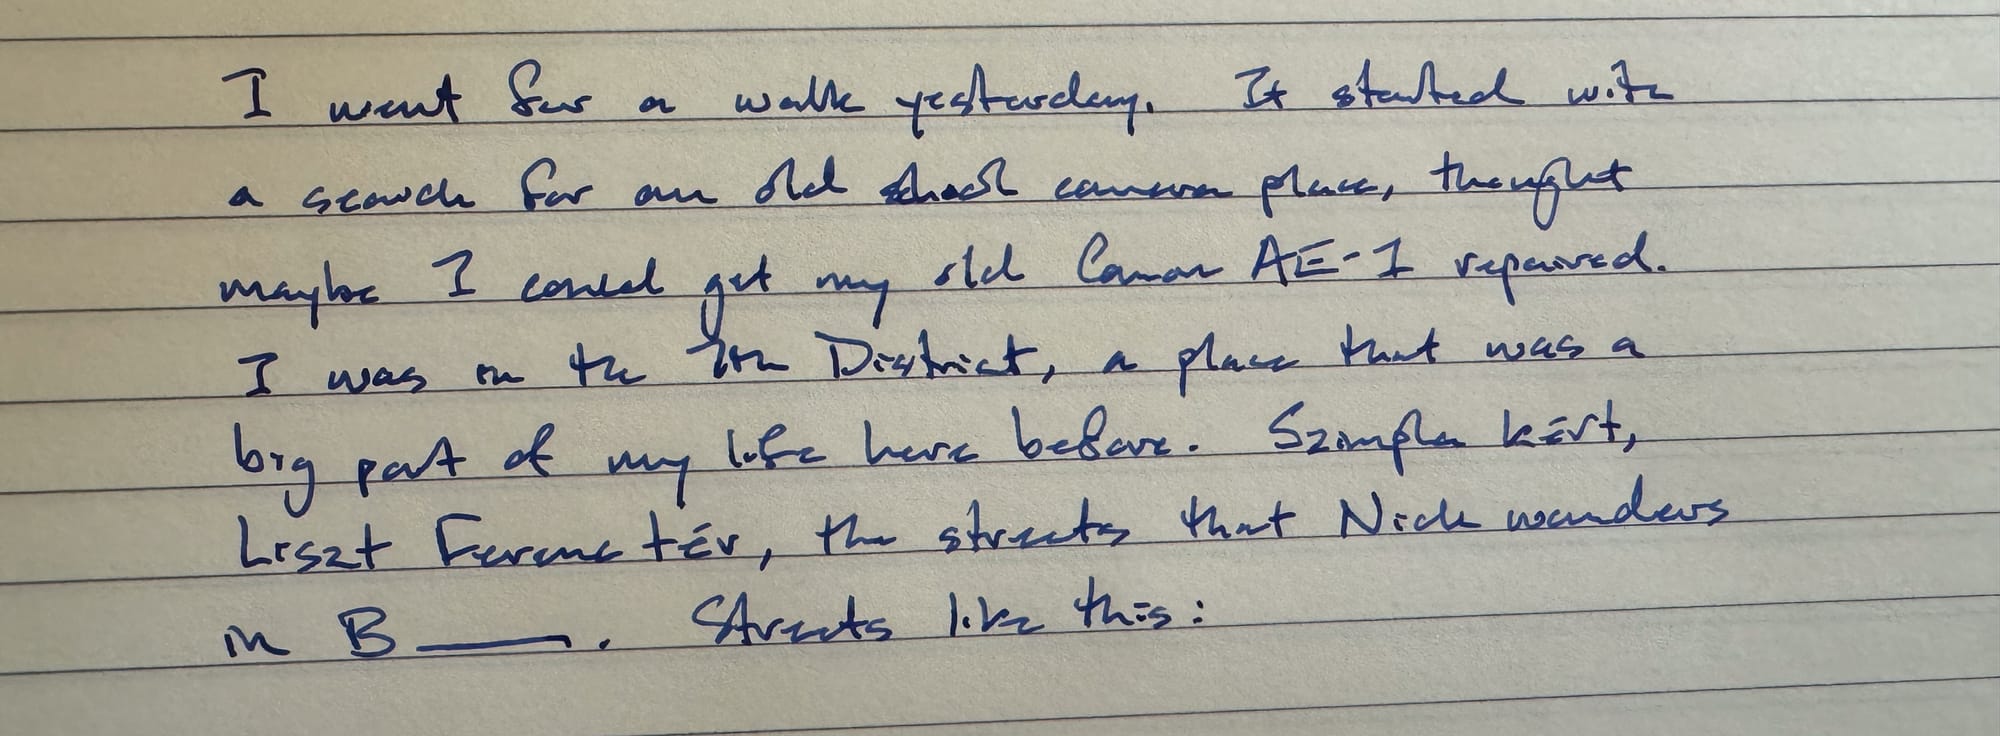 I went for a walk yesterday. It started with
a search for an old school camera place, thought
maybe I could get my old Canon AE-1 repaired.
I was in the 7th District, a place that was a
big part of my life here before. Szimpla kért,
Liszt Ferenc tér, the streets that Nick wanders
in B____. Streets like this: